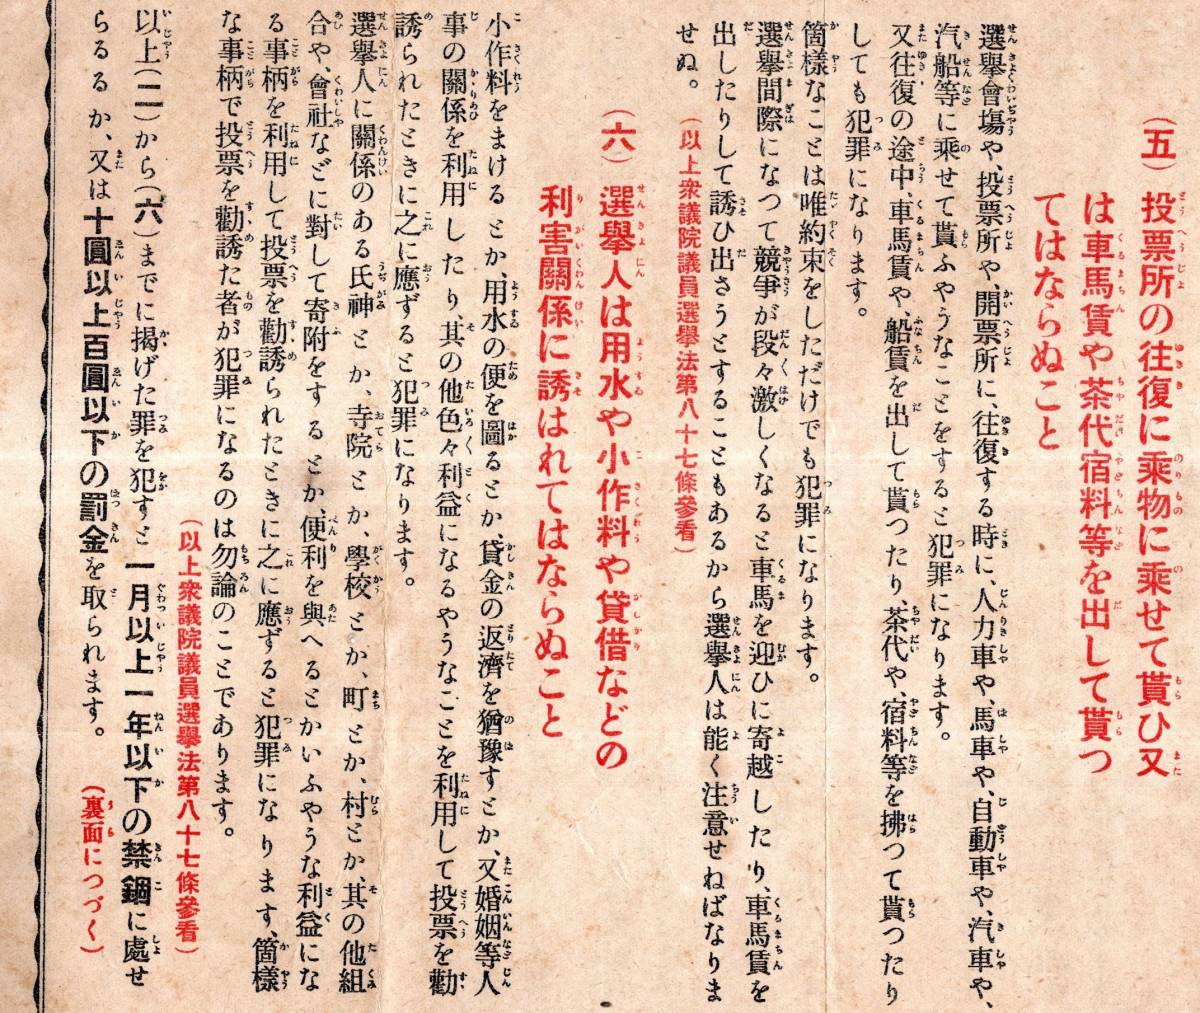 (五) 投票所の往復に乘物に乘せて貰ひ又
は車馬賃や茶代宿料等を出して貰つ
てはならぬこと
選擧會塲や、投票所や、開票所に、往復する時に、人力車や、馬車や、自動車や、汽車や、
汽船等に乘せて貰ふやうなことをすると犯罪になります。
又往復の途中、車馬賃や、船賃を出して貰つたり、茶代や、宿料等を拂つて貰つたり
しても犯罪になります。
箇樣なことは唯約束をしただけでも犯罪になります。
選擧間際になつて競爭が段々激しくなると車馬を迎ひに寄越したり、車馬賃を
出したりして誘ひ出さうとすることもあるから選擧人は能く注意せねばなりま
せぬ。
(以上衆議院議員選擧法第八十七條參看)
(六) 選擧人は用水や小作料や貸借などの
利害關係に誘はれてはならぬこと
小作料をまけるとか、用水の便を圖るとか、貸金の返濟を猶豫すとか、又婚姻等人
事の關係を利用したり、其の他色々利益になるやうなことを利用して投票を勸
誘られたときに之に應ずると犯罪になります。
選擧人に關係のある氏神とか、寺院とか、學校とか、町とか、村とか、其の他組
合や、會社などに對して寄附をするとか、便利を與へるとかいふやうな利益にな
る事柄を利用して投票を勸誘られたときに之に應ずると犯罪になります、箇樣
な事柄で投票を勸誘た者が犯罪になるのは勿論のことであります。
(以上衆議院議員選擧法第八十七條參看)
以上(二)から(六)までに揭げた罪を犯すと一月以上一年以下の禁錮に處せ
らるるか、又は十圓以上百圓以下の罰金を取られます。
(裏面につづく)